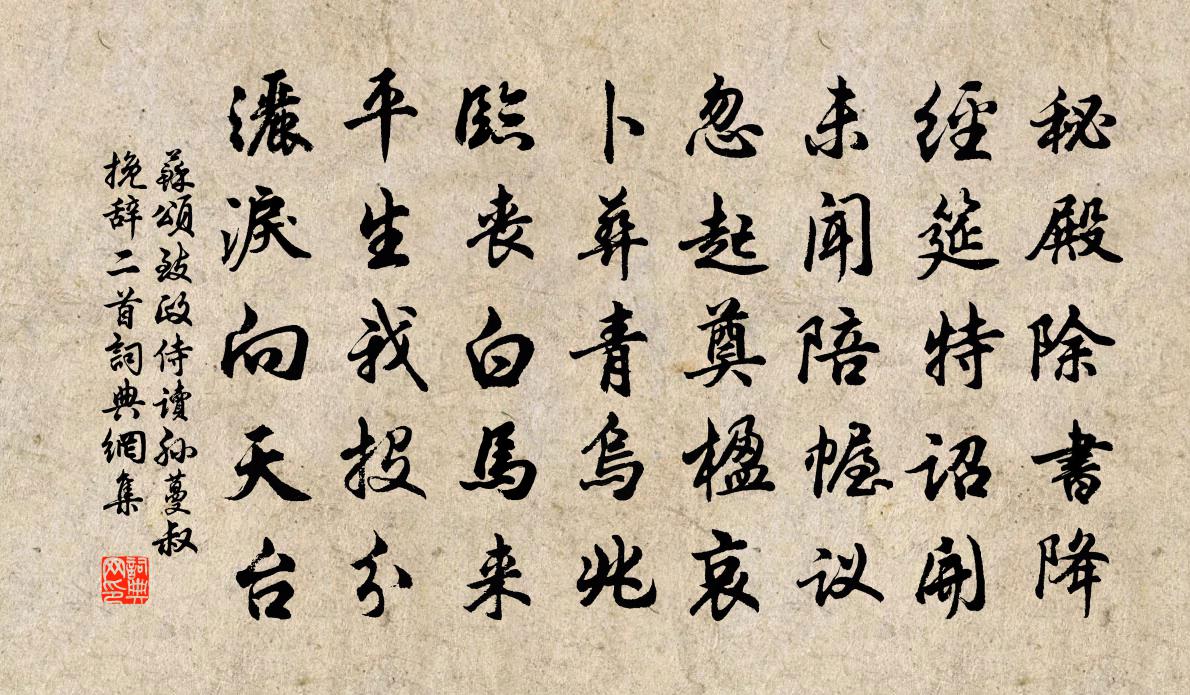 秘殿除書降
經筵特詔開
未聞陪幄议
忽起奠楹哀
卜葬青烏兆
臨喪白馬来
平生我投分
灑淚向天台
蘇頌致政侍讀孙蔓叔
挽辞二首詞典網集
詞典网印